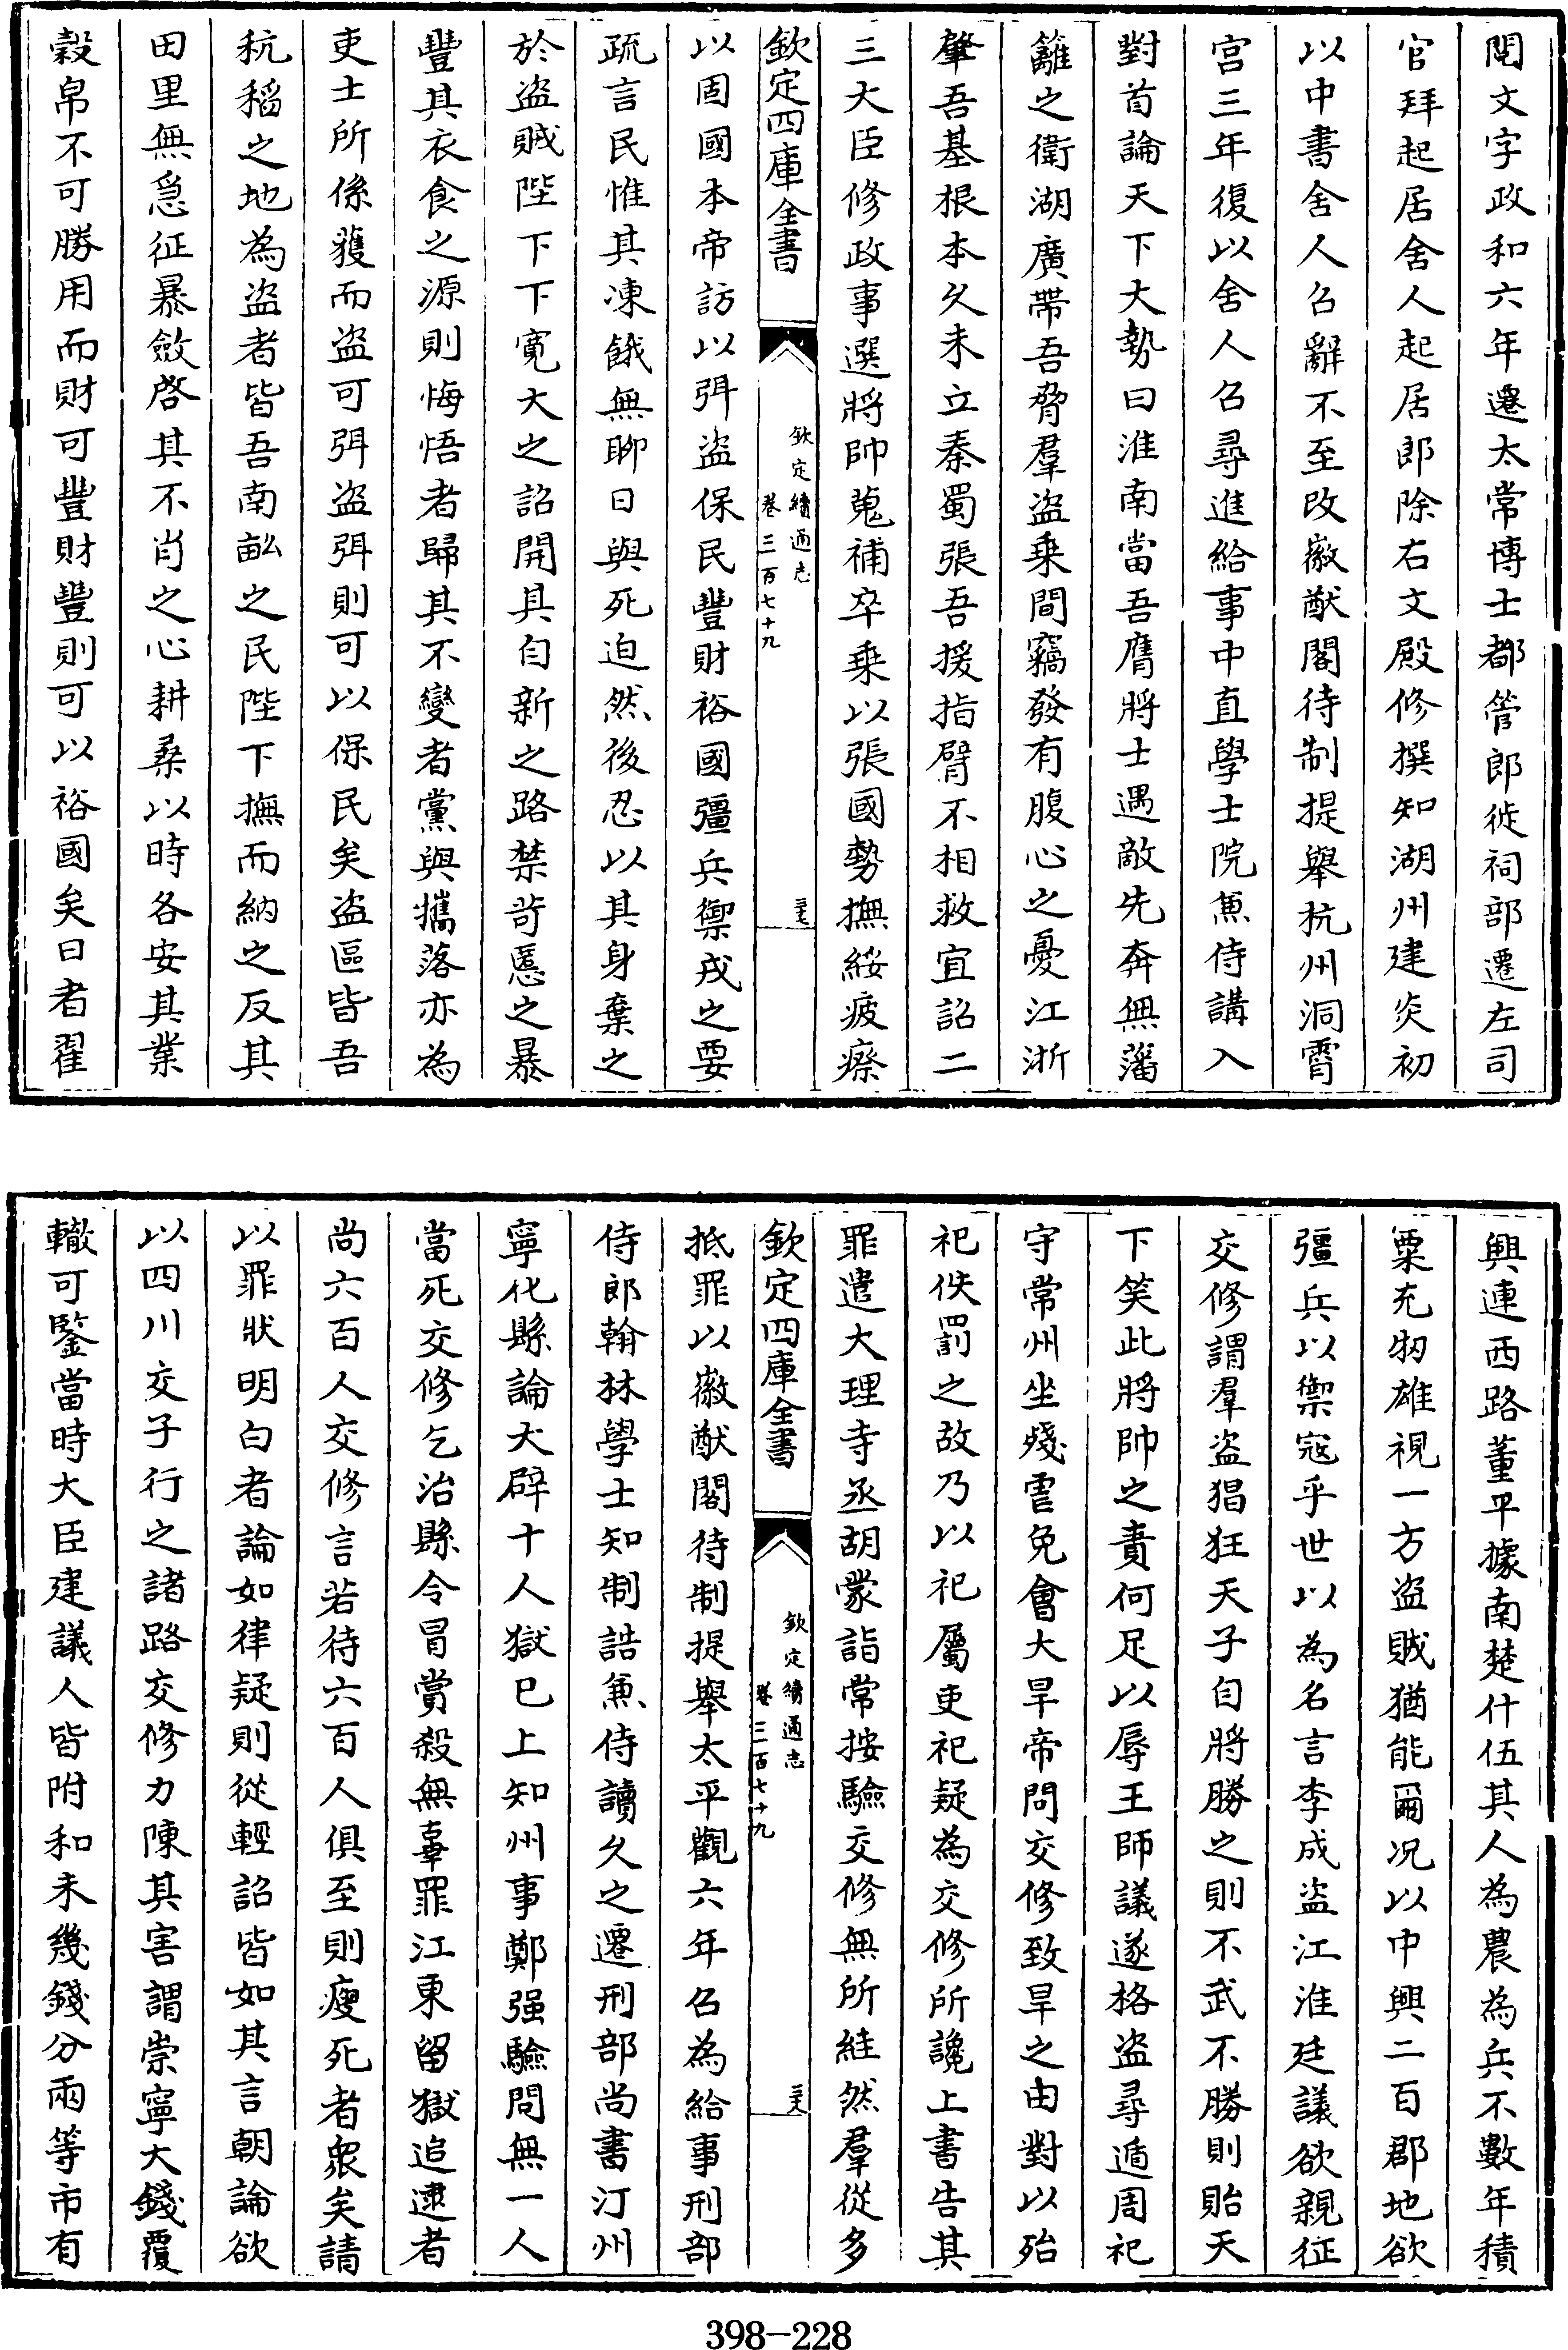 閱文字政和六年遷太常博士都管郎徙祠部遷左司
官拜起居舍人起居郎除右文殿修撰知湖州建炎初
以中書舍人召辭不至改徽猷閣待制提舉杭州洞霄
宫三年復以舍人召尋進給事中直學士院兼侍講入
對首論天下大勢曰淮南當吾膺將士遇敵先奔無藩
籬之衛湖廣帶吾脅羣盜乗間竊發有腹心之憂江浙
肇吾基根本久未立秦蜀張吾援指臂不相救宜詔二
三大臣修政事選將帥蒐補卒乗以張國勢撫綏疲瘵
欽定四庫全書
欽定續通志
卷三百七十九
三七
以固國本帝訪以弭盜保民豐財裕國彊兵禦戎之要
疏言民惟其凍餓無聊日與死迫然後忍以其身棄之
於盜賊陛下下寛大之詔開其自新之路禁苛慝之暴
豐其衣食之源則悔悟者歸其不變者黨與攜落亦為
吏士所係獲而盜可弭盜弭則可以保民矣盜區皆吾
秔稻之地為盜者皆吾南畝之民陛下撫而納之反其
田里無急征暴斂啓其不肖之心耕桑以時各安其業
穀帛不可勝用而財可豐財豐則可以裕國矣日者翟
興連西路董平據南楚什伍其人為農為兵不數年積
粟充牣雄視一方盜賊猶能爾况以中興二百郡地欲
彊兵以禦寇乎世以為名言李成盜江淮廷議欲親征
交修謂羣盜猖狂天子自將勝之則不武不勝則貽天
下笑此將帥之責何足以辱王師議遂格盜尋遁周祀
守常州坐殘虐免會大旱帝問交修致旱之由對以殆
祀佚罰之故乃以祀屬吏祀疑為交修所讒上書告其
罪遣大理寺丞胡蒙詣常按驗交修無所絓然羣從多
欽定四庫全書
欽定續通志
卷三百七十九
三六
抵罪以徽猷閣待制提舉太平觀六年召為給事刑部
侍郎翰林學士知制誥兼侍讀久之遷刑部尚書汀州
寧化縣論大辟十人獄已上知州事鄭强驗問無一人
當死交修乞治縣令冒賞殺無辜罪江東留獄追逮者
尚六百人交修言若待六百人俱至則瘦死者衆矣請
以罪狀明白者論如律疑則從輕詔皆如其言朝論欲
以四川交子行之諸路交修力陳其害謂崇寧大錢覆
轍可鑒當時大臣建議人皆附和未幾錢分兩等市有
398-228